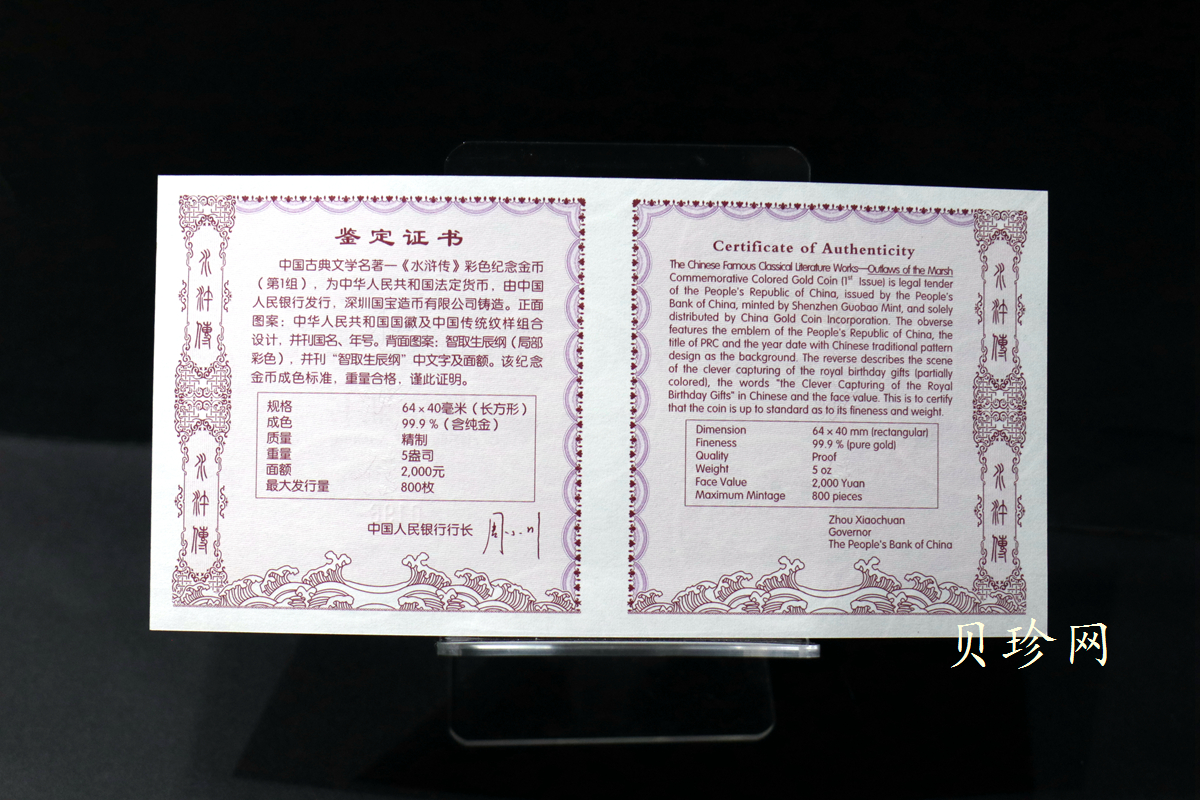 水浒傳
水浒傳
鉴定证书
中国古典文学名著—《水浒传》彩色纪念金币
（第1组），为中华人民共和国法定货币，由中国
人民银行发行，深圳国宝造币有限公司铸造。正面
图案：中华人民共和国国徽及中国传统纹样组合
设计，并刊国名、年号。背面图案：智取生辰纲（局部
彩色），并刊“智取生辰纲”中文字及面额。该纪念
金币成色标准，重量合格，谨此证明。
规格 64×40毫米（长方形）
成色 99.9%（含纯金）
质量 精制
重量 5盎司
面额 2,000元
最大发行量 800枚
中国人民银行行长 周小川
Certificate of Authenticity
The Chinese Famous Classical Literature Works—Outlaws of the Marsh
Commemorative Colored Gold Coin (1st Issue) is legal tender
of the People's Republic of China, issued by the People's
Bank of China, minted by Shenzhen Guobao Mint, and solely
distributed by China Gold Coin Incorporation. The obverse
features the emblem of the People's Republic of China, the
title of PRC and the year date with Chinese traditional pattern
design as the background. The reverse describes the scene
of the clever capturing of the royal birthday gifts (partially
colored), the words "the Clever Capturing of the Royal
Birthday Gifts" in Chinese and the face value. This is to certify
that the coin is up to standard as to its fineness and weight.
Dimension 64×40 mm (rectangular)
Fineness 99.9 % (pure gold)
Quality Proof
Weight 5 oz
Face Value 2,000 Yuan
Maximum Mintage 800 pieces
Zhou Xiaochuan
Governor
The People's Bank of China
水浒傳
水浒傳
贝珍网